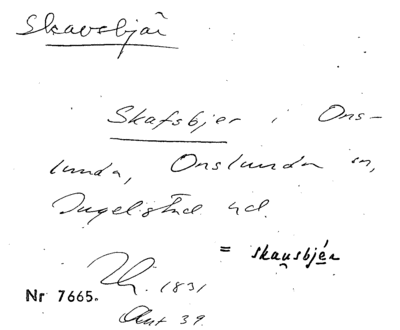 Skavsbjär
Skafsbjer i Ons-
lunda, Onslunda sn,
Ingelstad hd.
= skausbjér
1831
Nr 7665.
Akt 39.